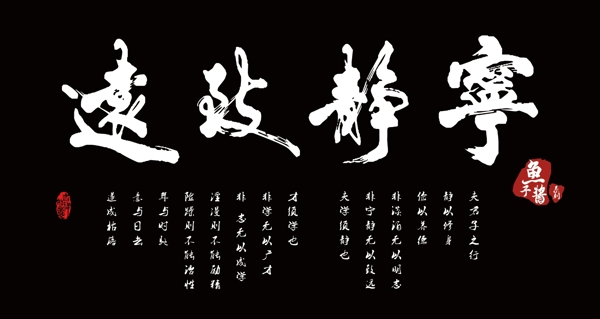 寧静致遠
夫君子之行
静以修身
俭以养德
非淡泊无以明志
非宁静无以致远
夫学须静也
才须学也
非学无以广才
非 志无以成学
淫漫则不能励精
险躁则不能治性
年与时驰
意与日去
遂成枯落